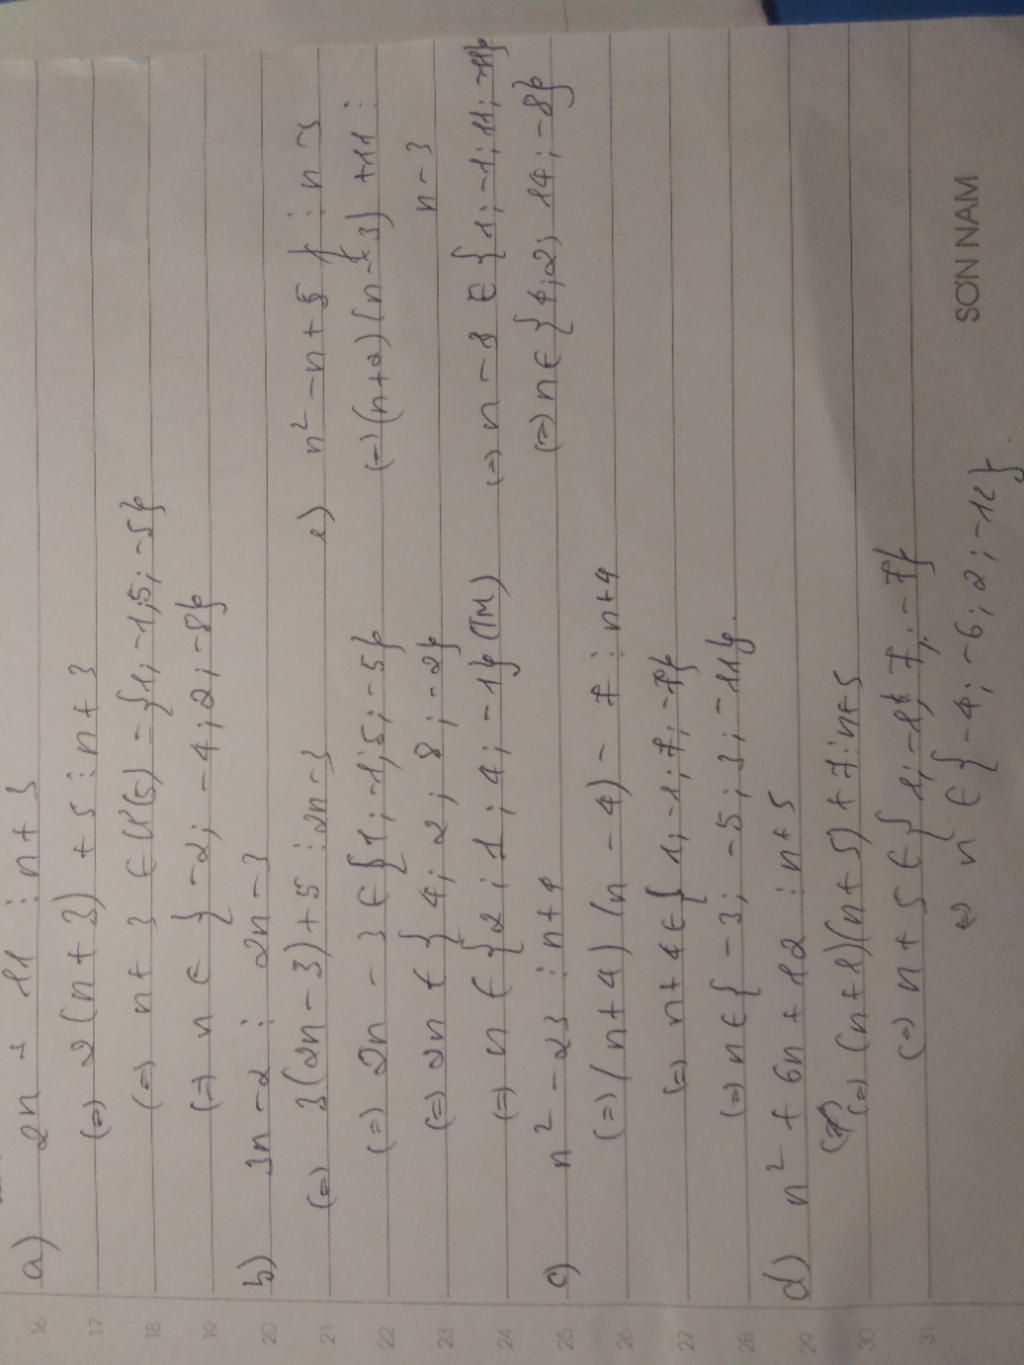 a) 2n + 11 ⋮ n+3
(=) 2(n+3) + 5 ⋮ n+3
(=) n+3 ∈ Ư(5) = {1; -1; 5; -5}
(=) n ∈ {-2; -4; 2; -8}
b) 3n - 2 ⋮ 2n - 3
(=) 3(2n - 3) + 5 ⋮ 2n - 3
(=) 2n - 3 ∈ {1; -1; 5; -5}
(=) 2n ∈ {4; 2; 8; -2}
(=) n ∈ {2; 1; 4; -1} (TM)
c) n² - 23 ⋮ n+4
(=) (n+4)(n - 4) - 7 ⋮ n+4
(=) n+4 ∈ {1; -1; 7; -7}
(=) n ∈ {-3; -5; 3; -11}.
d) n² + 6n + 12 ⋮ n+5
(=) (n+1)(n+5) + 7 ⋮ n+5
(=) n+5 ∈ {1; -1; 7; -7}
(=) n ∈ {-4; -6; 2; -12}.
e) n² - n + 5 ⋮ n - 3
(=) (n+2)(n - 3) + 11 ⋮
n - 3
(=) n - 3 ∈ {1; -1; 11; -11}
(=) n ∈ {4; 2; 14; -8}
SƠN NAM
16
17
18
19
20
21
22
23
24
25
26
27
28
29
30
31